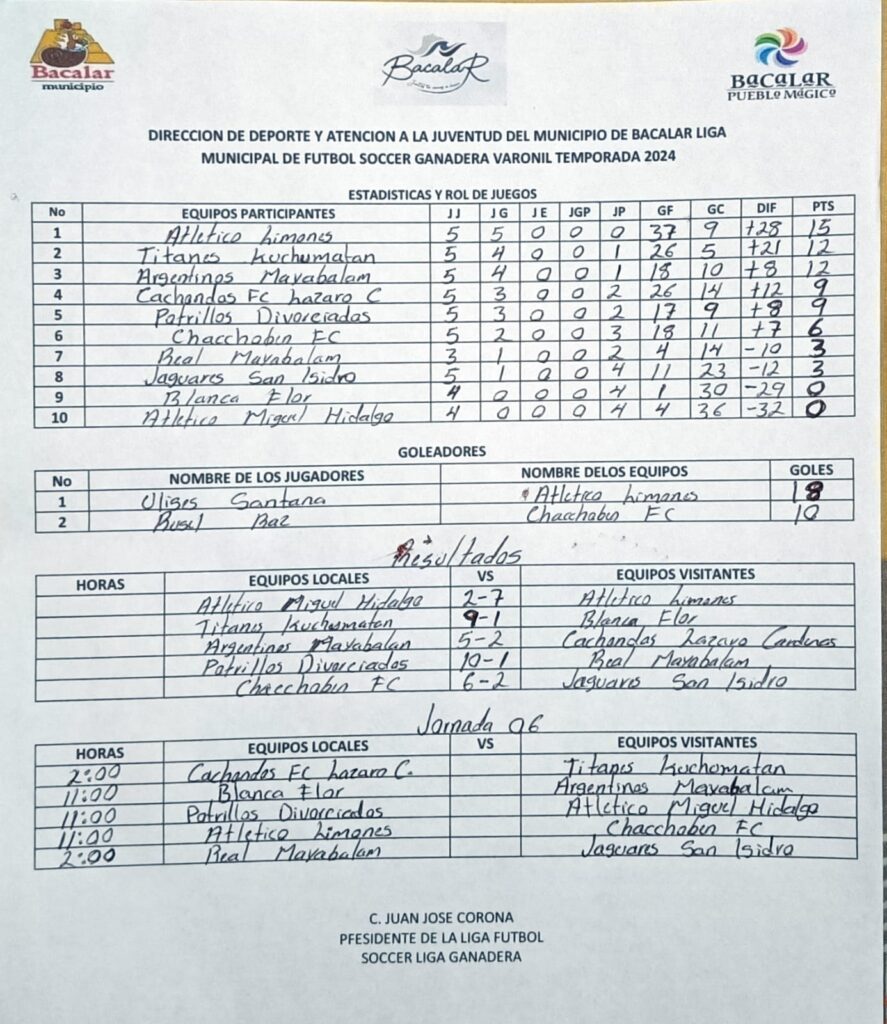 Bacalar
municipio
BacalaR
BacaLaR
PUEBLO MáGICO
DIRECCION DE DEPORTE Y ATENCION A LA JUVENTUD DEL MUNICIPIO DE BACALAR LIGA
MUNICIPAL DE FUTBOL SOCCER GANADERA VARONIL TEMPORADA 2024
ESTADISTICAS Y ROL DE JUEGOS
No EQUIPOS PARTICIPANTES J J J G J E JGP JP GF GC DIF PTS
1 Atletico Limones 5 5 0 0 0 37 9 +28 15
2 Titanes Kuchumatan 5 4 0 0 1 26 5 +21 12
3 Argentinos Mayabalam 5 4 0 0 1 18 10 +8 12
4 Cachondos FC Lazaro C 5 3 0 0 2 26 14 +12 9
5 Potrillos Divorciados 5 3 0 0 2 17 9 +8 9
6 Chacchoben FC 5 2 0 0 3 18 11 +7 6
7 Real Mayabalam 3 1 0 0 2 4 14 -10 3
8 Jaguares San Isidro 5 1 0 0 4 11 23 -12 3
9 Blanca Flor 4 0 0 0 4 1 30 -29 0
10 Atletico Miguel Hidalgo 4 0 0 0 4 4 36 -32 0
GOLEADORES
No NOMBRE DE LOS JUGADORES NOMBRE DELOS EQUIPOS GOLES
1 Ulises Santana Atletico Limones 18
2 Baz Chacchoben FC 10
Resultados
HORAS EQUIPOS LOCALES VS EQUIPOS VISITANTES
Atletico Miguel Hidalgo 2-7 Atletico Limones
Titanes Kuchumatan 9-1 Blanca Flor
Argentinos Mayabalam 5-2 Cachondos Lazaro Cardenas
Potrillos Divorciados 10-1 Real Mayabalam
Chacchoben FC 6-2 Jaguares San Isidro
Jornada 06
HORAS EQUIPOS LOCALES VS EQUIPOS VISITANTES
2:00 Cachondos FC Lazaro C. Titanes Kuchomatan
11:00 Blanca Flor Argentinos Mayabalam
11:00 Potrillos Divorciados Atletico Miguel Hidalgo
11:00 Atletico Limones Chacchoben FC
2:00 Real Mayabalam Jaguares San Isidro
C. JUAN JOSE CORONA
PFESIDENTE DE LA LIGA FUTBOL
SOCCER LIGA GANADERA